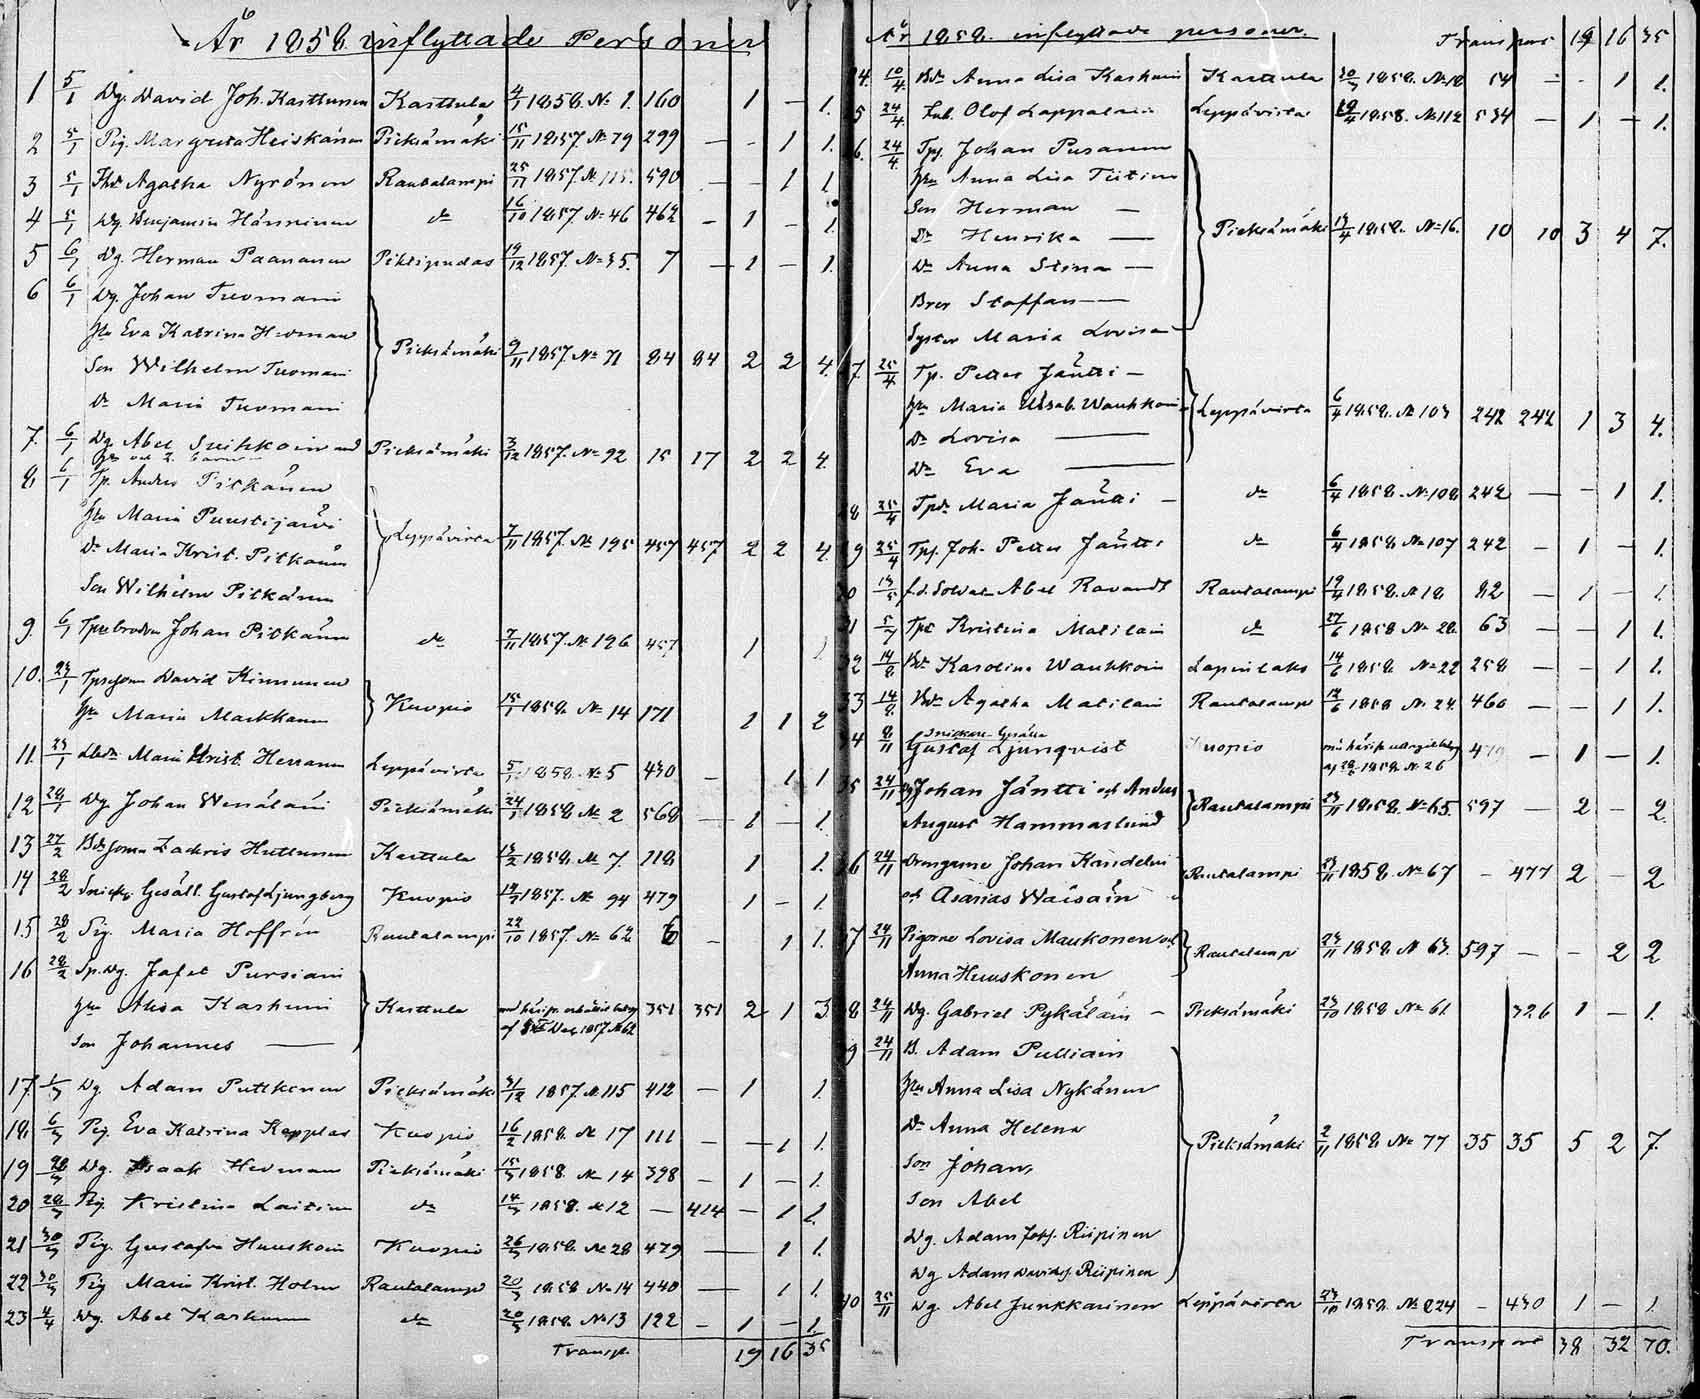 År 1858 inflyttade Personer
1 5/1 Dg. David Joh. Karttunen Karttula 4/1 1858. No 1. 160 1 – 1.
2 5/1 Pig. Margreta Heiskanen Pieksämäki 15/11 1857. No 79 299 – – 1 1.
3 5/1 Agatha Nyrönen Rautalampi 25/11 1857. No 115. 590 – – 1 1.
4 5/1 Dg. Benjamin Hänninen do 16/10 1857. No 46 462 – 1 – 1.
5 6/1 Dg. Herman Paananen Pihtipudas 19/12 1857. No 35. 7 – 1 – 1.
6 6/1 Dg. Johan Tuomain
Hu Eva Katrina Hedman
Son Wilhelm Tuomain Pieksämäki 9/11 1857. No 71 84 84 2 2 4.
Dr Maria Tuomain
7. 6/1 Dg. Abel Suihkoin Pieksämäki 3/12 1857. No 92 15 17 2 2 4.
8 6/1 Tp. Anders Pitkänen
Hu Maria Puustijärvi
Dr Maria Krist. Pitkänen Leppävirta 7/11 1857. No 195 457 457 2 2 4.
Son Wilhelm Pitkänen
9. 6/1 Johan Pitkänen do 7/11 1857. No 196 457 1 1.
10. 23/1 David Kinnunen
Hu Maria Markkanen Kuopio 15/1 1858. No 14 171 1 1 2
11. 23/1 Maria Krist. Herranen Leppävirta 5/1 1858. No 5 430 – 1 1
12 28/1 Dg. Johan Wenäläin Pieksämäki 24/1 1858 No 2 568 – 1 – 1.
13 27/2 Zachris Huttunen Karttula 13/2 1858. No 7. 118 1 1.
14 28/2 Snick. Gesäll. Gustaf Ljungberg Kuopio 1857. No 94 479 1 – 1.
15 28/2 Pig. Maria Hoffrén Rautalampi 22/10 1857. No 62 6 – 1 1.
16 28/2 Sp. Dg. Jafet Pursiain
Hu Alisa Kashunin Karttula 351 351 2 1 3
Son Johannes ——
17. 1/3 Dg. Adam Puttkonen Pieksämäki 31/12 1857. No 115 412 – 1 1.
18 6/3 Pig. Eva Katrina Kopplas Kuopio 16/2 1858. No 17 111 – – 1 1.
19 28/3 Dg. Isaak Hedman Pieksämäki 15/3 1858. No 14 398 – 1 – 1.
20 28/3 Pig. Kristina Laitinen do 14/3 1858. No 12 – 414 – 1 1.
21 30/3 Pig. Gustafva Huuskoin Kuopio 26/3 1858. No 28 479 – 1 1.
22 30/3 Pig Maria Krist. Holm Rautalampi 20/3 1858 No 14 440 – 1 1.
23 4/4 Dg. Abel Kashunen do 20/3 1858. No 13 122 – 1 – 1
Transp. 19 16 35
År 1858. inflyttade personer. Transport 19 16 35
4. 10/4 Anna Lisa Kashunin Karttula 20/3 1858. No 18 54 – – 1 1.
5 24/4 Olof Lappalain Leppävirta 1858. No 112 534 – 1 – 1.
6. 24/4 Tpj. Johan Pusanen
Hu Anna Lisa Tiitinen
Son Herman —
Dr Henrika — Pieksämäki 13/4 1858. No 16. 10 10 3 4 7.
Dr Anna Stina —
Bror Staffan —
Syster Maria Lovisa —
7. 25/4 Tp. Petter Jäntti —
Hu Maria Elisab. Wauhkoin Leppävirta 6/4 1858. No 103 242 242 1 3 4.
Dr Lovisa ——
Dr Eva ——
8 25/4 Maria Jäntti – do 6/4 1858. No 108 242 – – 1 1.
9 25/4 Tpj. Joh. Petter Jäntti do 6/4 1858. No 107 242 – 1 – 1.
30 13/5 f.d. Soldat Abel Ravandt Rautalampi 1858. No 18 82 – 1 – 1.
31 Kristina Matilain do 27/6 1858 No 28. 63 – – 1 1.
32 14/8 Karolina Wauhkoin Lapinlaks 14/6 1858 No 22 258 – – 1 1.
33 14/8 Agatha Matilain Rautalampi 1858 No 24. 460 – – 1 1.
34 8/11 Snickare Gesälln Gustaf Ljunqvist Kuopio 1858. No 26 479 – 1 – 1.
35 24/11 Dg Johan Jäntti och Anders
August Hammarlund Rautalampi 23/11 1858. No 65. 597 – 2 – 2.
36 24/11 Drengarne Johan Kandelin
och Asarias Wäisäin Rautalampi 23/11 1858. No 67 – 477 2 – 2
37 24/11 Pigorne Lovisa Maukonen och
Anna Huuskonen Rautalampi 23/11 1858 No 63. 597 – – 2 2
38 24/11 Dg. Gabriel Pykäläin – Pieksämäki 23/10 1858 No 61 326 1 – 1.
39 24/11 B. Adam Pulliain
Hu Anna Lisa Nykänen
Dr Anna Helena Pieksämäki 2/11 1858. No 77 35 35 5 2 7.
Son Johan,
Son Abel
Dg. Adam Johs. Riipinen
Dg Adam Davids. Riipinen
40 25/11 Dg. Abel Junkkarinen Leppävirta 23/10 1858. No 224 – 430 1 – 1.
Transport 38 32 70.